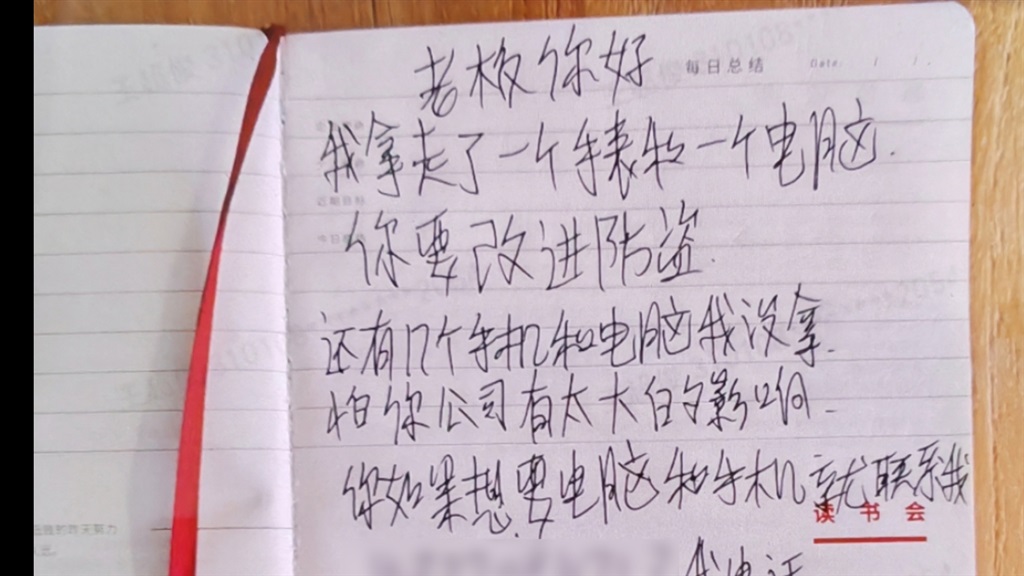 老板你好
每日总结 Date: / / .
我拿走了一个手表和一个电脑.
近期目标
你要改进防盗.
还有几个手机和电脑我没拿.
怕你公司有太大的影响.
你如果想要电脑和手机就联系我
读书会